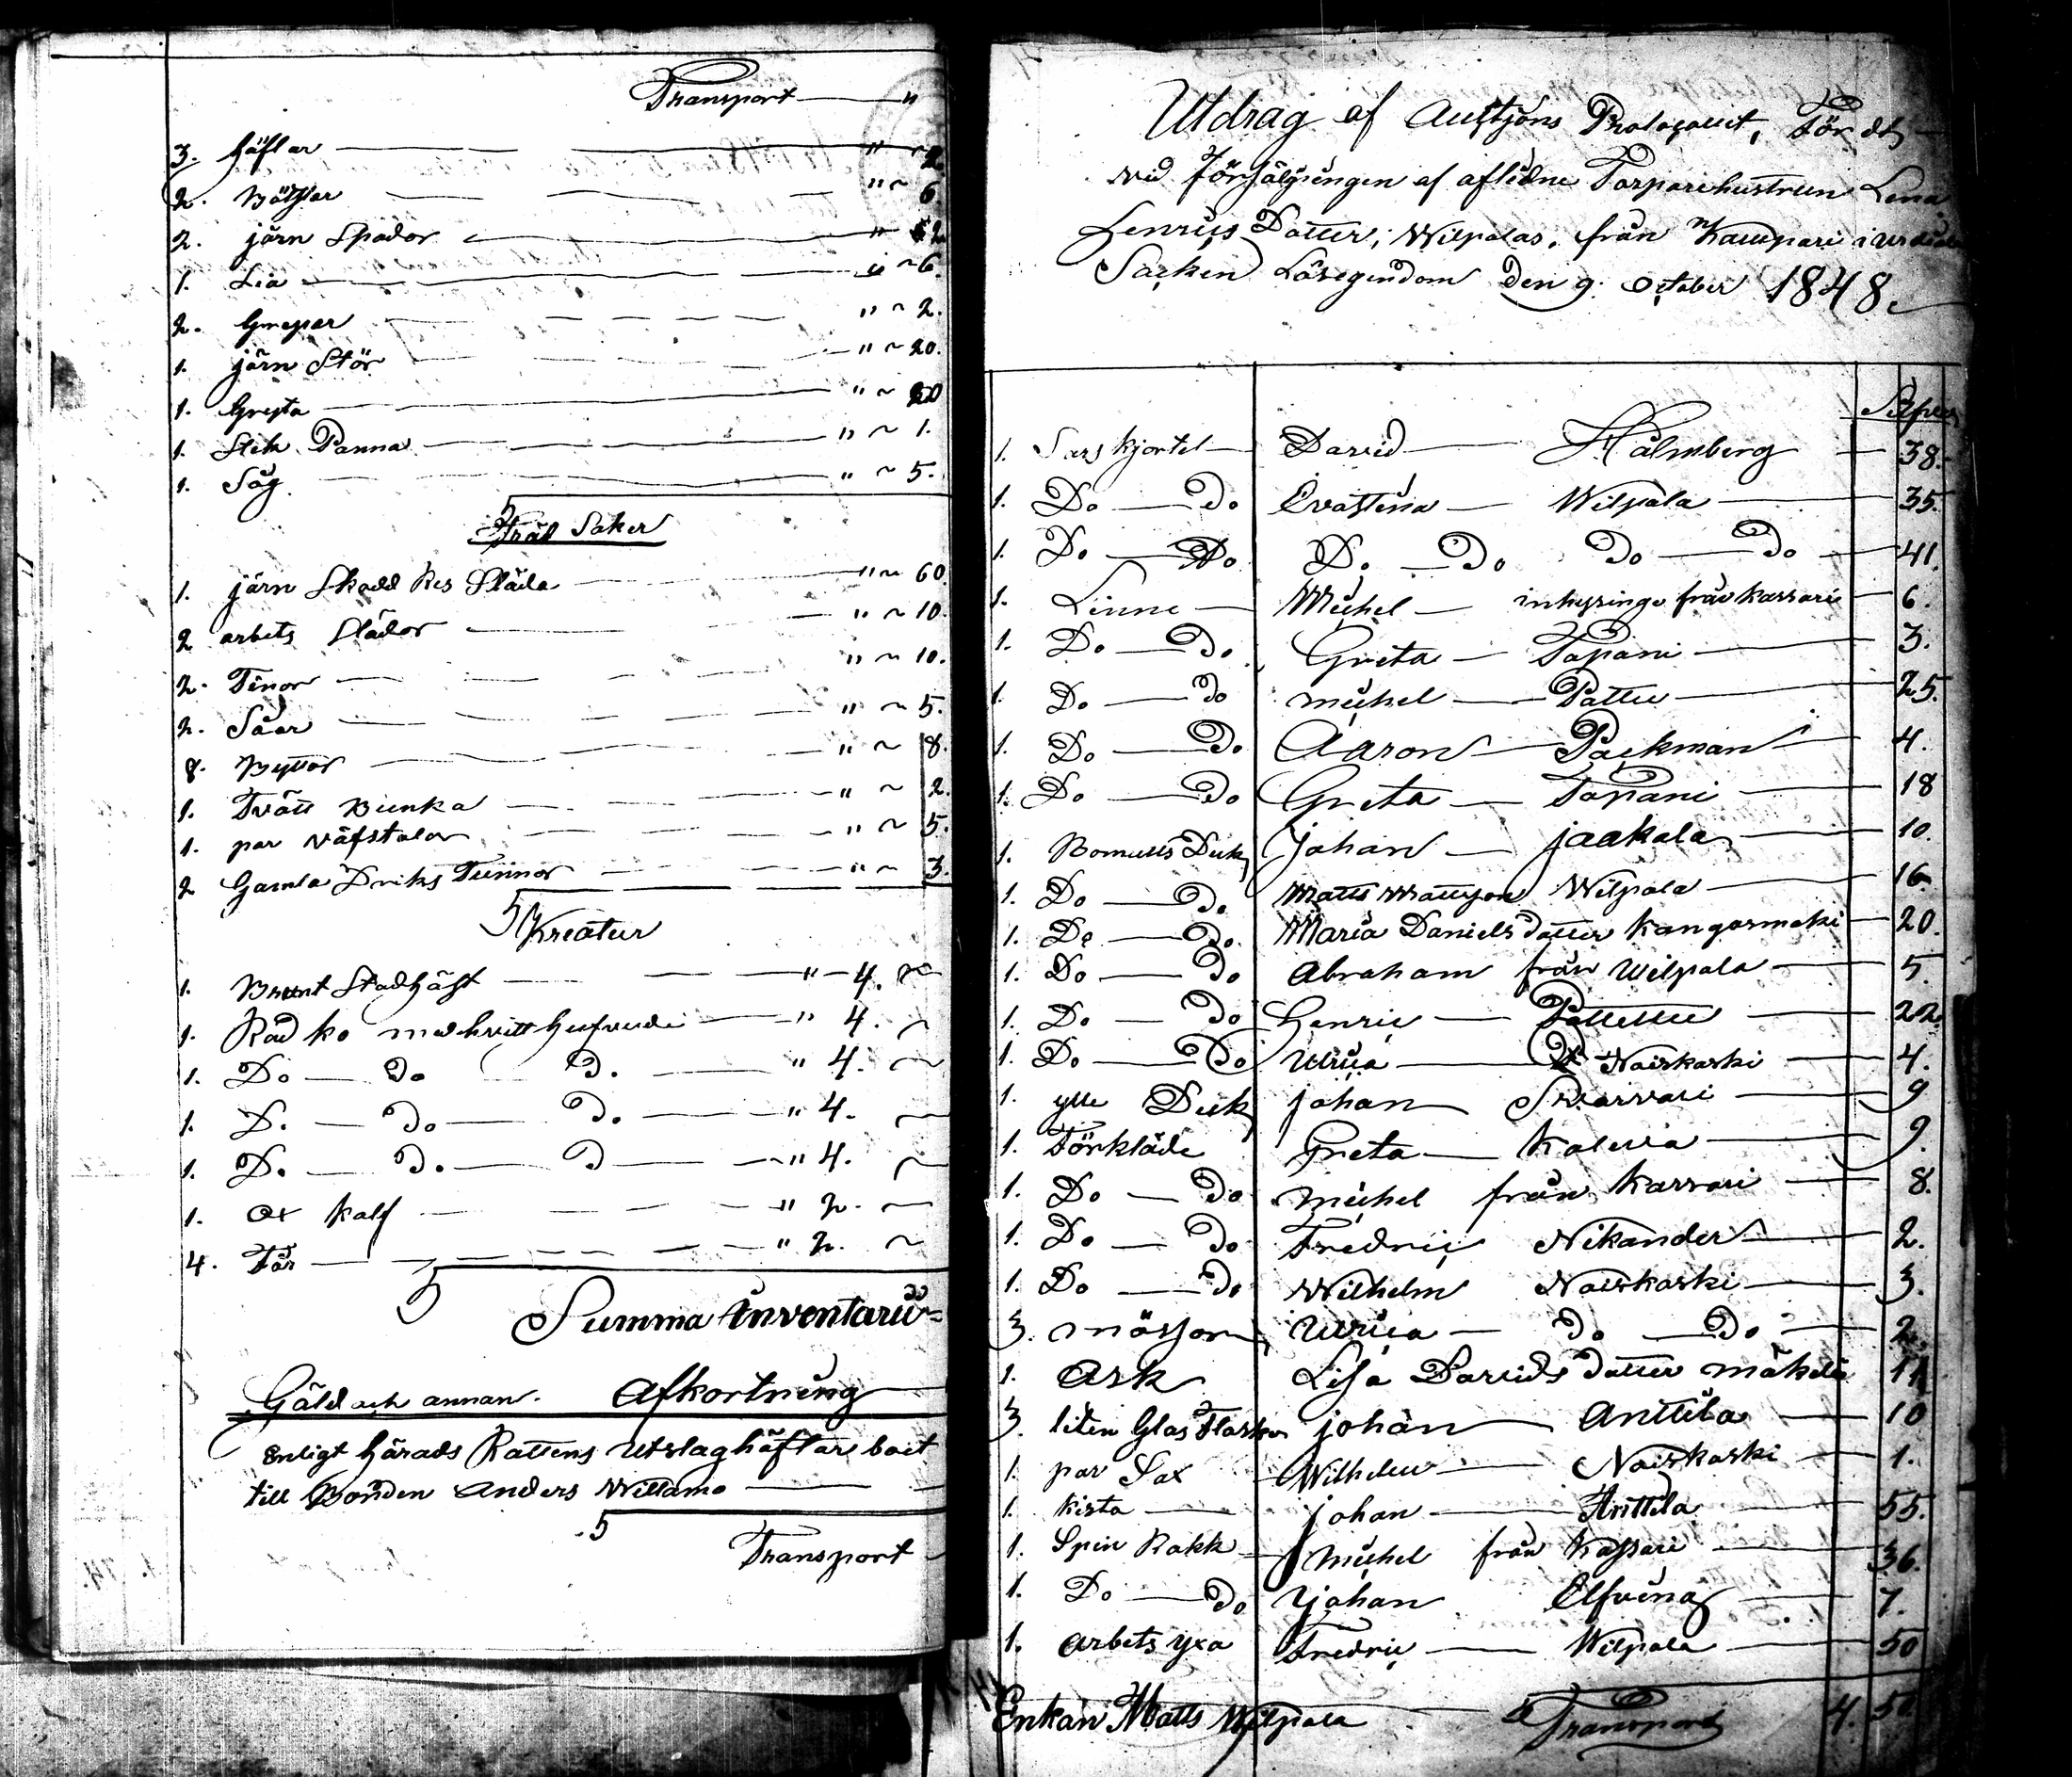 Transport — "
3. häflar — " ~ 2.
2. Bötflar " ~ 6.
2. järn Spador — " ~ 12
1. Lia — " ~ 6.
2. Grepar " ~ 2.
1. järn Stör — " ~ 20.
1. Gryta — " ~ 60
1. Stek Panna — " ~ 1.
1. Såg — " ~ 5.
Träd Saker
1. järn Skodd Res Släda — " ~ 60.
2 arbets Slädor — " ~ 10.
2. Tinor — " ~ 10.
2. Såar — " ~ 5.
8. Byttor — " ~ 8.
1. Tvätt Bunka — " ~ 2.
1. par väfstalar — " ~ 5.
2 Gamla Driks Tunnor — " ~ 3.
Kreatur
1. Brunt Stod häst — " 4. ~
1. Röd ko med hvitt hufvude — " 4. ~
1. Do — Do Do " 4. ~
1. Do — Do — Do — " 4. ~
1. Do — Do — Do — " 4. ~
1. Ox kalf — " 2. ~
4. Får — " 2. ~
Summa Inventarii
Gäld och annan Afkortning
Enligt härads Rättens Utslag häftar boet
till Bonden Anders Willamo —
Transport
Utdrag af Auctjons Protocollet, Fördt
vid Försäljningen af aflidne Torparehustrun Lena
Henrics Dotter, Wilpalas, från Kaupari i
Socken Lösegendom den 9. October 1848.
Silfver
1. Sars kjortel — David — Hålmberg — 38.
1. Do — Do Evastina — Wilpala — 35.
1. Do — Do Do — Do Do — Do — 41.
1. Linne — Michel — inhysinge från Karsari — 6.
1. Do — Do Greta — Tapani — 3.
1. Do — Do Michel — Pattu — 25.
1. Do — Do Aaron — Packman — 4.
1. Do — Do Greta — Tapani — 18
1. Bomulls Duk Johan — Jaakala — 10.
1. Do — Do Matts Mattsson Wilpala — 16.
1. Do — Do Maria Daniels dotter Kangasmeki — 20.
1. Do — Do Abraham från Wilpala — 5.
1. Do — Do Henric — — 22.
1. Do — Do Ulrica — Noiskoski — 4.
1. ylle Duk Johan — — 9
1. Förkläde Greta — Kaleva — 9.
1. Do — Do Michel från Karsari — 8.
1. Do — Do Fredric Nikander — 2.
1. Do — Do Wilhelm Noiskoski — 3.
3. mössor Ulrica — Do — Do — 2.
1. Ask Lisa Davids dotter mäkelä 11
3. liten Glas Flaskor Johan — Anttila — 10
1. par Sax Wilhelm — Noiskoski — 1.
1. kista — Johan — Anttila — 55.
1. Spin Rokk — Michel från Kassari — 36.
1. Do — Do Johan Elfving — 7.
1. arbets yxa Fredric — Wilpala — 50
Enkan Matts Wilpala — Transport 4. 50